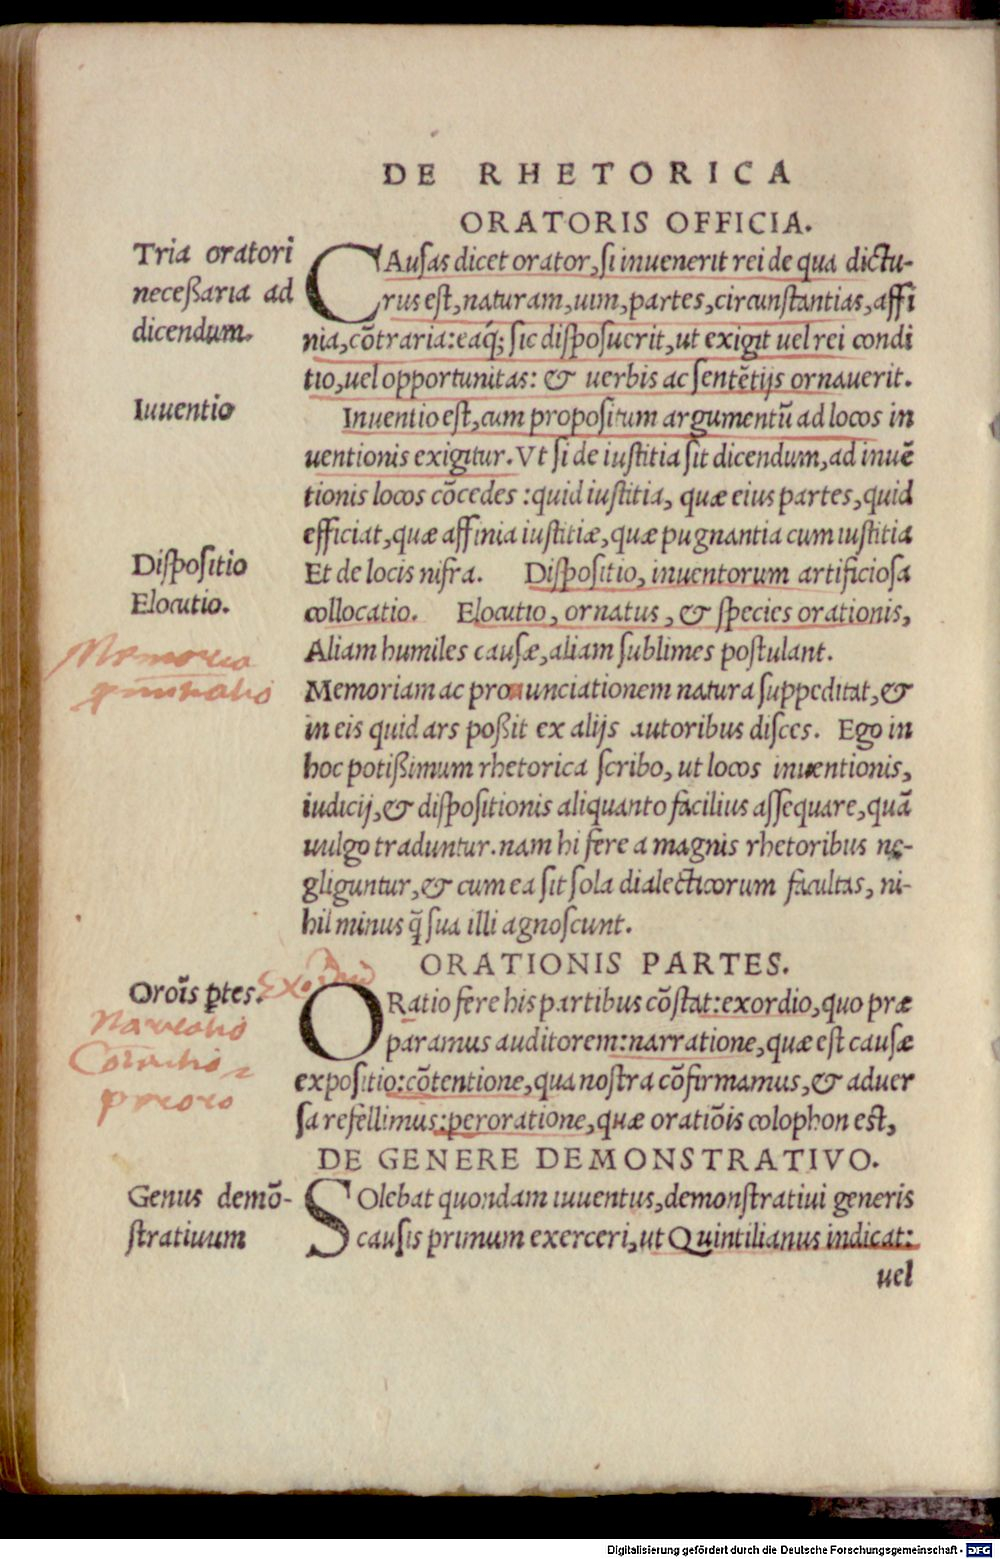 DE RHETORICA
ORATORIS OFFICIA.
Tria oratori
neceßaria ad
dicendum.
CAusas dicet orator, si inuenerit rei de qua dictu-
rus est, naturam, uim, partes, circunstantias, affi
nia, cōtraria: eaq; sic disposuerit, ut exigit uel rei condi
tio, uel opportunitas: & uerbis ac sentētijs ornauerit.
Iuuentio
Inuentio est, cum propositum argumentū ad locos in
uentionis exigitur. Vt si de iustitia sit dicendum, ad inuē
tionis locos cōcedes: quid iustitia, quæ eius partes, quid
efficiat, quæ affinia iustitiæ, quæ pugnantia cum iustitia
Dispositio
Et de locis nifra. Dispositio, inuentorum artificiosa
Elocutio.
collocatio. Elocutio, ornatus, & species orationis,
Aliam humiles causæ, aliam sublimes postulant.
Memoria
Memoriam ac pronunciationem natura suppeditat, &
in eis quid ars poßit ex alijs autoribus disces. Ego in
hoc potißimum rhetorica scribo, ut locos inuentionis,
iudicij, & dispositionis aliquanto facilius assequare, quā
uulgo traduntur. nam hi fere a magnis rhetoribus ne-
gliguntur, & cum ea sit sola dialecticorum facultas, ni-
hil minus q̃ sua illi agnoscunt.
ORATIONIS PARTES.
Oroīs ptes.
Exordiū
ORatio fere his partibus cōstat: exordio, quo præ
Narratio
paramus auditorem: narratione, quæ est causæ
expositio: cōtentione, qua nostra cōfirmamus, & aduer
peroro
sa refellimus: peroratione, quæ oratiōis colophon est,
DE GENERE DEMONSTRATIVO.
Genus demō-
stratiuum
SOlebat quondam iuuentus, demonstratiui generis
causis primum exerceri, ut Quintilianus indicat:
uel
Digitalisierung gefördert durch die Deutsche Forschungsgemeinschaft - DFG